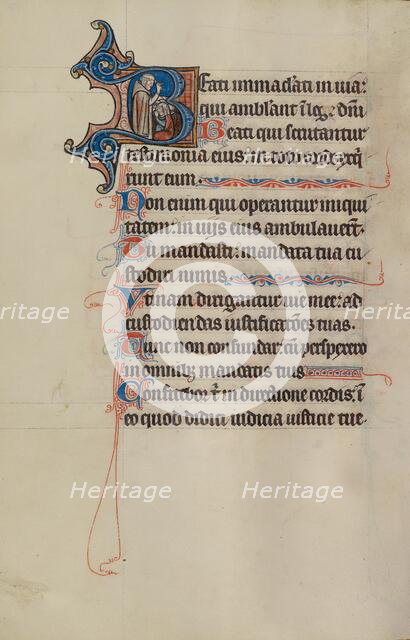 Beati immaculati in uia:
qui ambulant ī lege dñi
Beati qui scrutantur
testimonia eius: in toto
runt eum.
Non enim qui operantur iniqui
tatem: in uijs eius ambulauert̄.
Tu mandasti: mandata tua cu
stodiri nimis.
Vtinam dirigantur uie mee: ad
custodiendas iustificatiōes tuas.
Tunc non confundar: cū perspexero
in omnibȝ mandatis tuis.
Confitebor t̄ in directione cordis: ī
eo quod didici iudicia iusticie tue.
Heritage
Heritage
Heritage
Heritage
Heritage
Heritage
Heritage